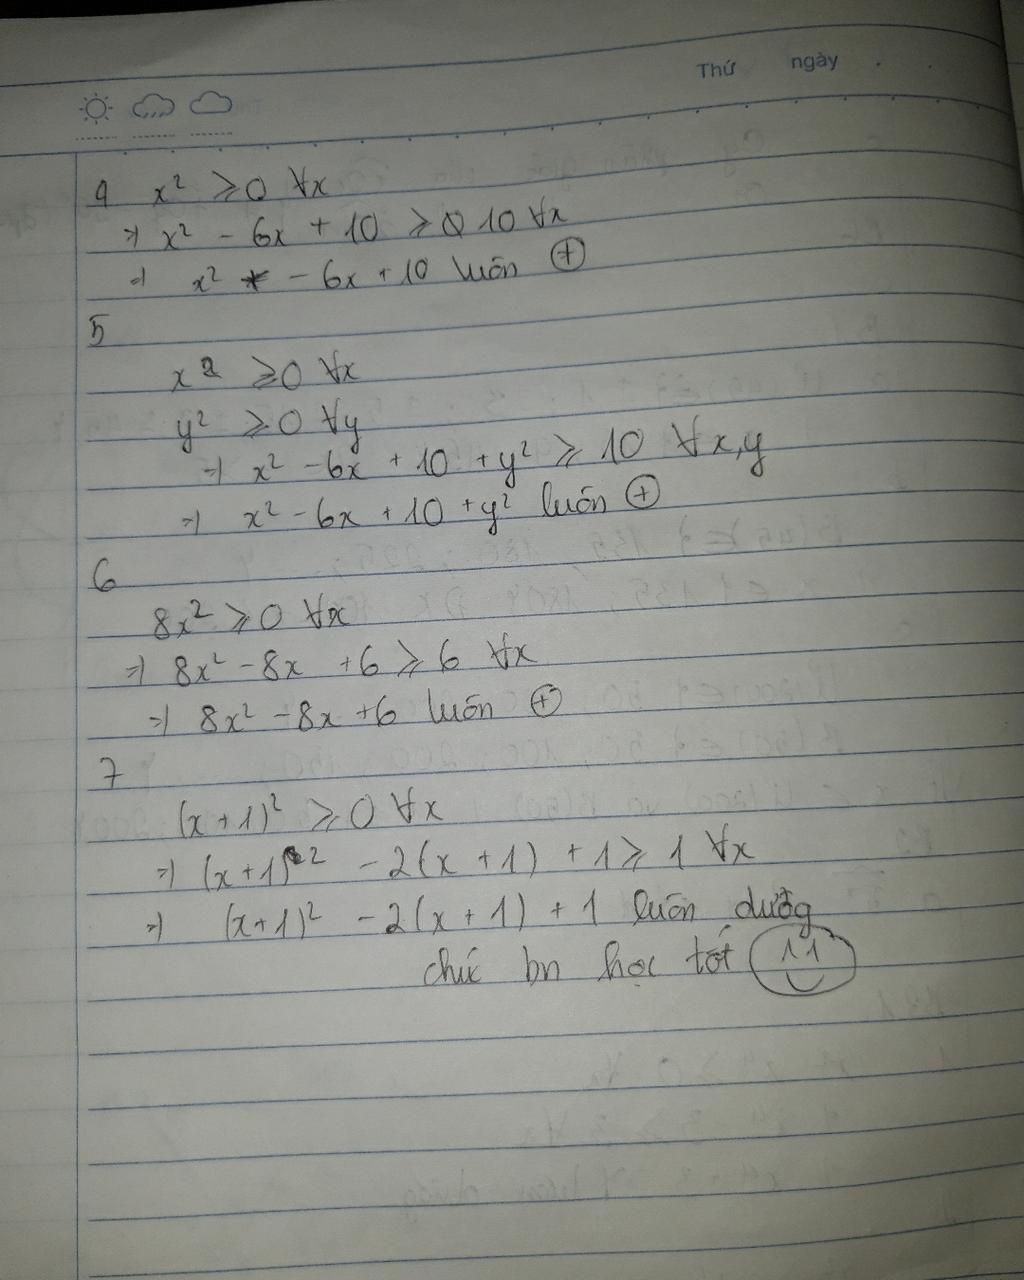 Thứ ngày
4 x² ⩾0 ∀x
⇒ x² - 6x + 10 ⩾ 10 ∀x
⇒ x² - 6x + 10 luôn ⊕
5
x² ⩾0 ∀x
y² ⩾0 ∀y
⇒ x² - 6x + 10 + y² ⩾ 10 ∀x,y
⇒ x² - 6x + 10 + y² luôn ⊕
6
8x² ⩾0 ∀x
⇒ 8x² - 8x + 6 ⩾ 6 ∀x
⇒ 8x² - 8x + 6 luôn ⊕
7
(x + 1)² ⩾0 ∀x
⇒ (x + 1)² - 2(x + 1) + 1 ⩾ 1 ∀x
⇒ (x + 1)² - 2(x + 1) + 1 luôn dương
chúc bn học tốt